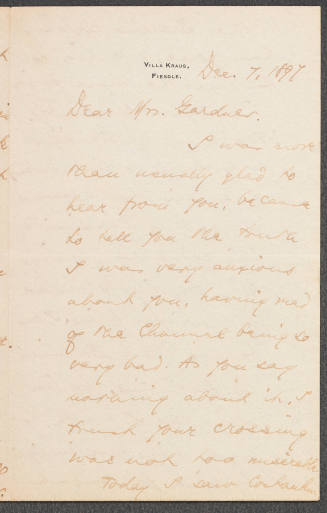 VILLA KRAUS,
FIESOLE.
Dec. 7, 1897
Dear Mrs. Gardner.
I was more
than usually glad to
hear from you, because
to tell you the truth
I was very anxious
about you, having read
of the Channel being so
very bad. As you say
nothing about it, I
trust your crossing
was not too miserable
Today I saw